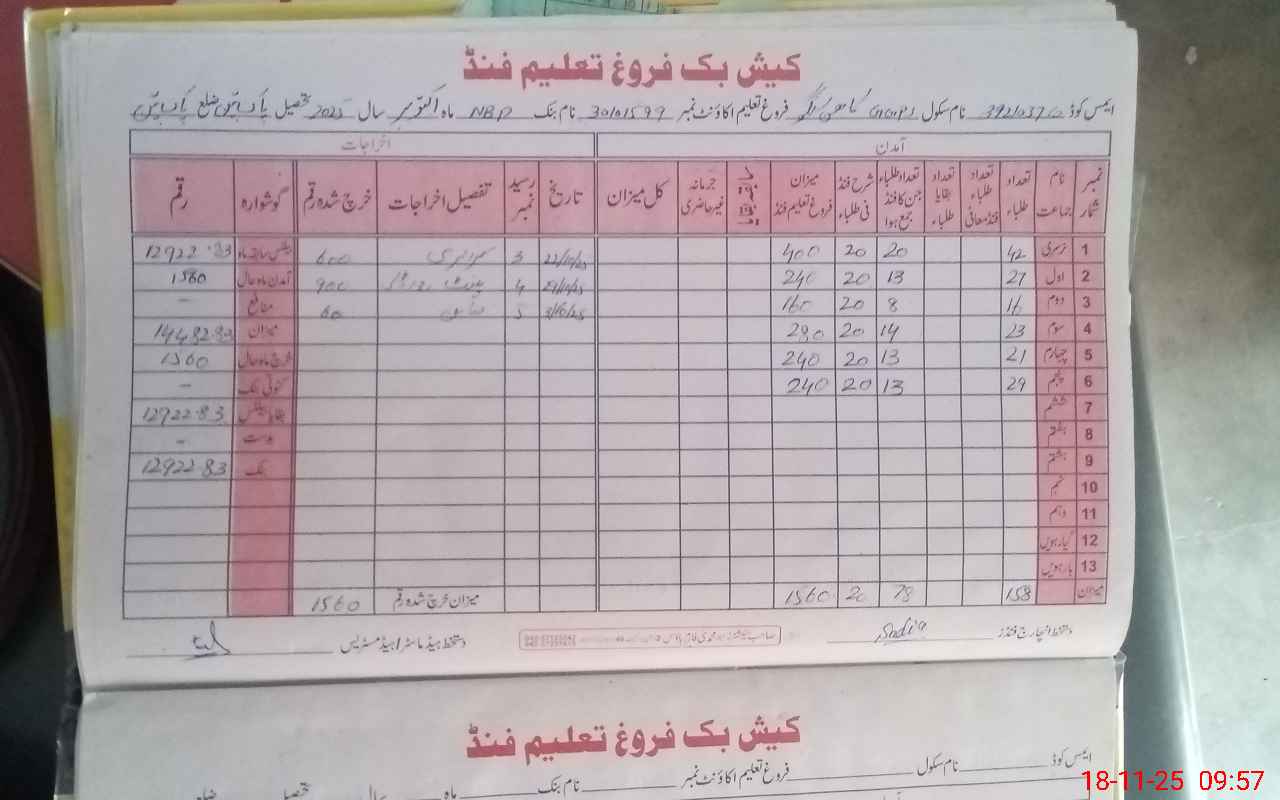 کیش بک فروغ تعلیم فنڈ
ایمس کوڈ نام سکول GGCPS فروغ تعلیم اکاؤنٹ نمبر 30101599 نام بنک NBP ماہ اکتوبر سال 2025 تحصیل پاکپتن ضلع پاکپتن
آمدن اخراجات
نمبر شمار نام جماعت تعداد طلباء تعداد طلباء فنڈ معافی تعداد بقایا طلباء تعداد طلباء جن کا فنڈ جمع ہوا شرح فنڈ فی طلباء میزان فروغ تعلیم فنڈ سابقہ بقایا جرمانہ غیر حاضری کل میزان تاریخ رسید نمبر تفصیل اخراجات خرچ شدہ رقم گوشوارہ رقم
1 نرسری 42 20 20 400 3 600 بیلنس سابقہ ماہ 12922.83
2 اول 27 13 20 240 4 900 آمدن ماہ حال 1560
3 دوم 16 8 20 160 5 60 منافع -
4 سوم 23 14 20 280 میزان 14482.83
5 چہارم 21 13 20 240 خرچ ماہ حال 1560
6 پنجم 29 13 20 240 کٹوتی بنک -
7 ششم بقایا بیلنس 12922.83
8 ہفتم بدست -
9 ہشتم بنک 12922.83
10 نہم
11 دہم
12 گیارہویں
13 بارہویں
میزان 158 78 20 1560 میزان خرچ شدہ رقم 1560
دستخط انچارج فنڈز Sadia دستخط ہیڈ ماسٹر / ہیڈ مسٹریس
کیش بک فروغ تعلیم فنڈ
ایمس کوڈ نام سکول فروغ تعلیم اکاؤنٹ نمبر نام بنک ماہ سال تحصیل ضلع
18-11-25 09:57